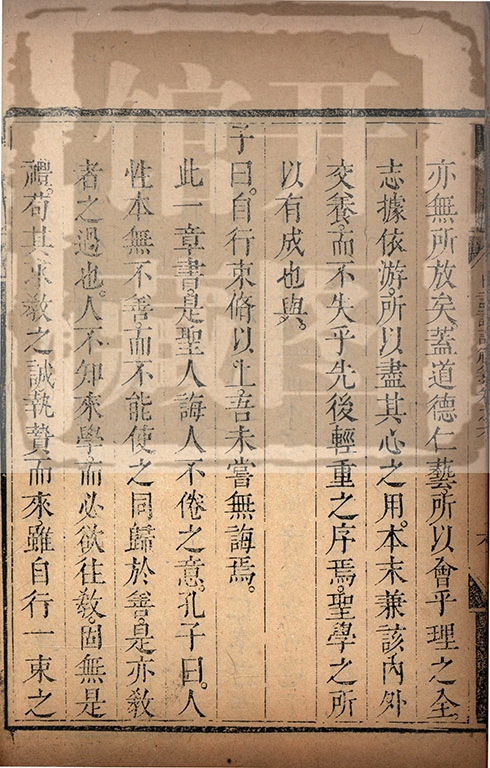 亦無所放矣。蓋道德仁藝所以會乎理之全。
志據依游所以盡其心之用。本末兼該內外
交養。而不失乎先後輕重之序焉。聖學之所
以有成也與。
子曰。自行束脩以上吾未嘗無誨焉。
此一章書是聖人誨人不倦之意。孔子曰。人
性本無不善。而不能使之同歸於善。是亦教
者之過也。人不知來學而必欲往教。固無是
禮。苟其求教之誠執贄而來。雖自行一束之